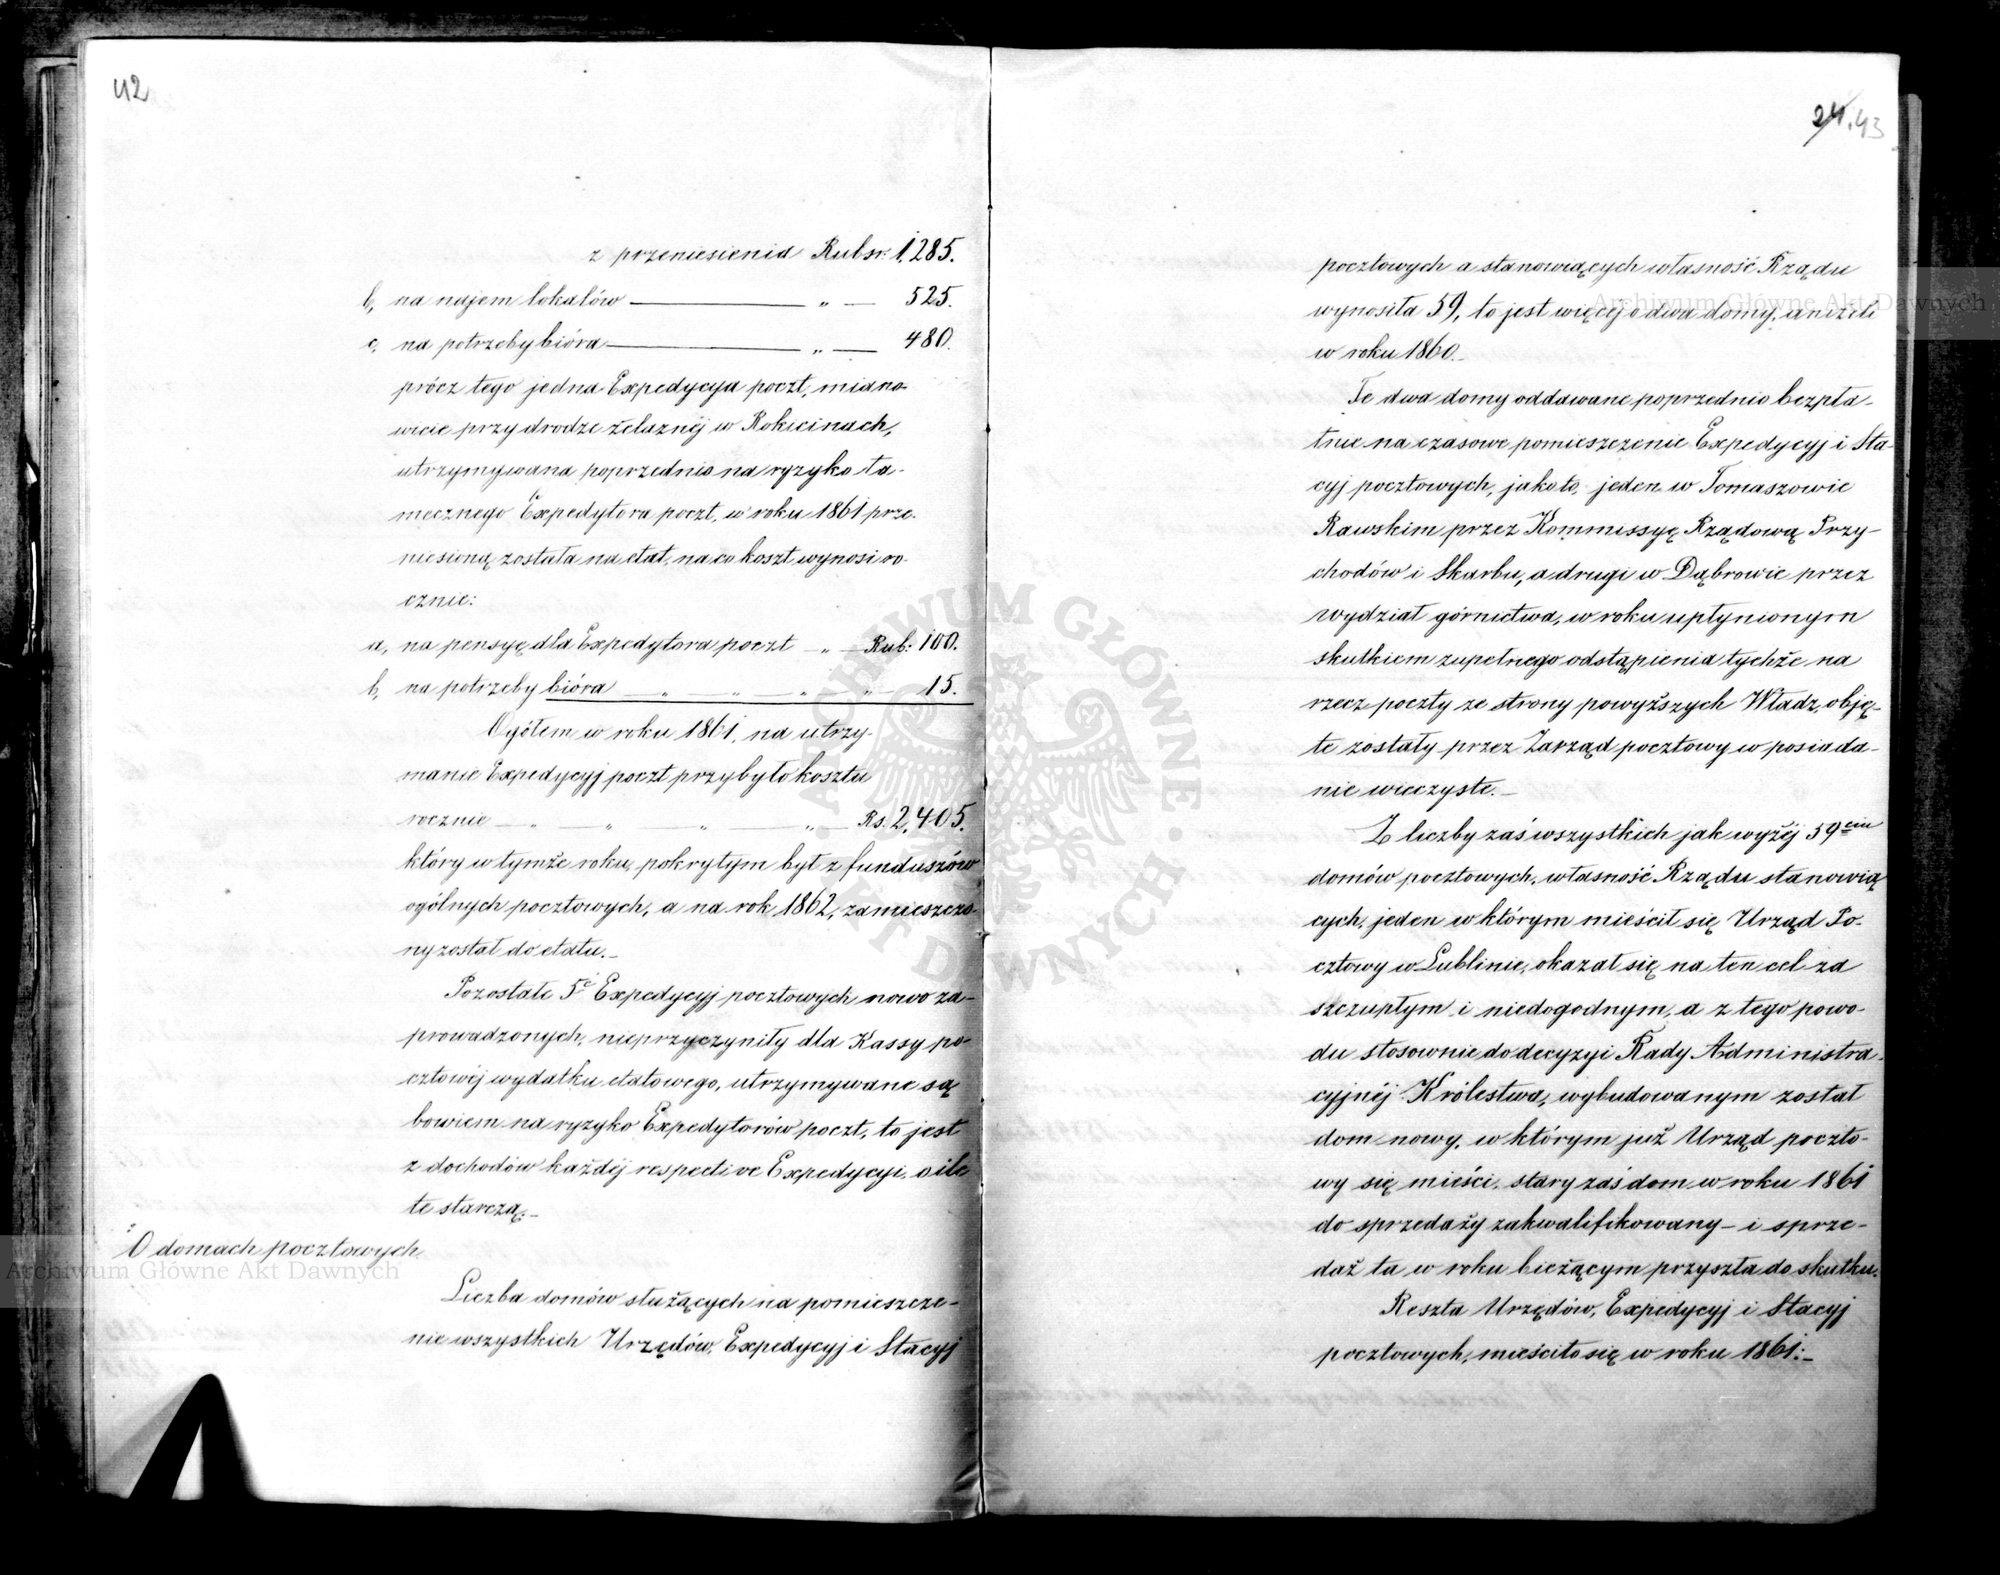 42
z przeniesienia Rubsr. 1,285.
b, na najem lokalów „ 525.
c, na potrzeby bióra „ 480.
prócz tego jedna Expedycya poczt, miano-
wicie przy drodze żelaznéj w Rokicinach,
utrzymywana poprzednio na ryzyko ta-
mecznego Expedytora poczt, w roku 1861 prze-
niesioną została na etat, na co koszt wynosi ro-
cznie:
a, na pensyę dla Expedytora poczt „ Rub: 100.
b, na potrzeby bióra „ „ „ „ 15.
Ogółem w roku 1861, na utrzy-
manie Expedycyj poczt przybyło kosztu
rocznie „ „ „ „ Rs. 2,405.
który w tymże roku, pokrytym był z funduszów
ogólnych pocztowych, a na rok 1862, zamieszczo-
ny został do etatu.
Pozostałe 5ć Expedycyj pocztowych nowo za-
prowadzonych, nieprzyczyniły dla Kassy po-
cztowéj wydatku etatowego, utrzymywane są
bowiem na ryzyko Expedytorów poczt, to jest
z dochodów każdéj respective Expedycyi, o ile
te starczą.
O domach pocztowych.
Liczba domów służących na pomieszcze-
nie wszystkich Urzędów, Expedycyj i Stacyj
24. 43
pocztowych a stanowiących własność Rządu
wynosiła 59, to jest więcéj o dwa domy, aniżeli
w roku 1860.
Te dwa domy oddawane poprzednio bezpła-
tnie na czasowe pomieszczenie Expedycyj i Sta-
cyj pocztowych, jako to, jeden w Tomaszowie
Rawskim przez Kommissyę Rządową Przy-
chodów i Skarbu, a drugi w Dąbrowie przez
wydział górnictwa, w roku upłynionym
skutkiem zupełnego odstąpienia tychże na
rzecz poczty ze strony powyższych Władz, obję-
te zostały przez Zarząd pocztowy w posiada-
nie wieczyste.
Z liczby zaś wszystkich jak wyżéj 59ciu
domów pocztowych, własność Rządu stanowią
cych, jeden w którym mieścił się Urząd Po-
cztowy w Lublinie, okazał się na ten cel za
szczupłym i niedogodnym, a z tego powo-
du stosownie do decyzyi Rady Administra-
cyjnéj Królestwa, wybudowanym został
dom nowy, w którym już Urząd poczto-
wy się mieści, stary zaś dom w roku 1861
do sprzedaży zakwalifikowany – i sprze-
daż ta w roku bieżącym przyszła do skutku.
Reszta Urzędów, Expedycyj i Stacyj
pocztowych, mieściło się w roku 1861:
Archiwum Główne Akt Dawnych
Archiwum Główne Akt Dawnych
ARCHIWUM GŁÓWNE AKT DAWNYCH